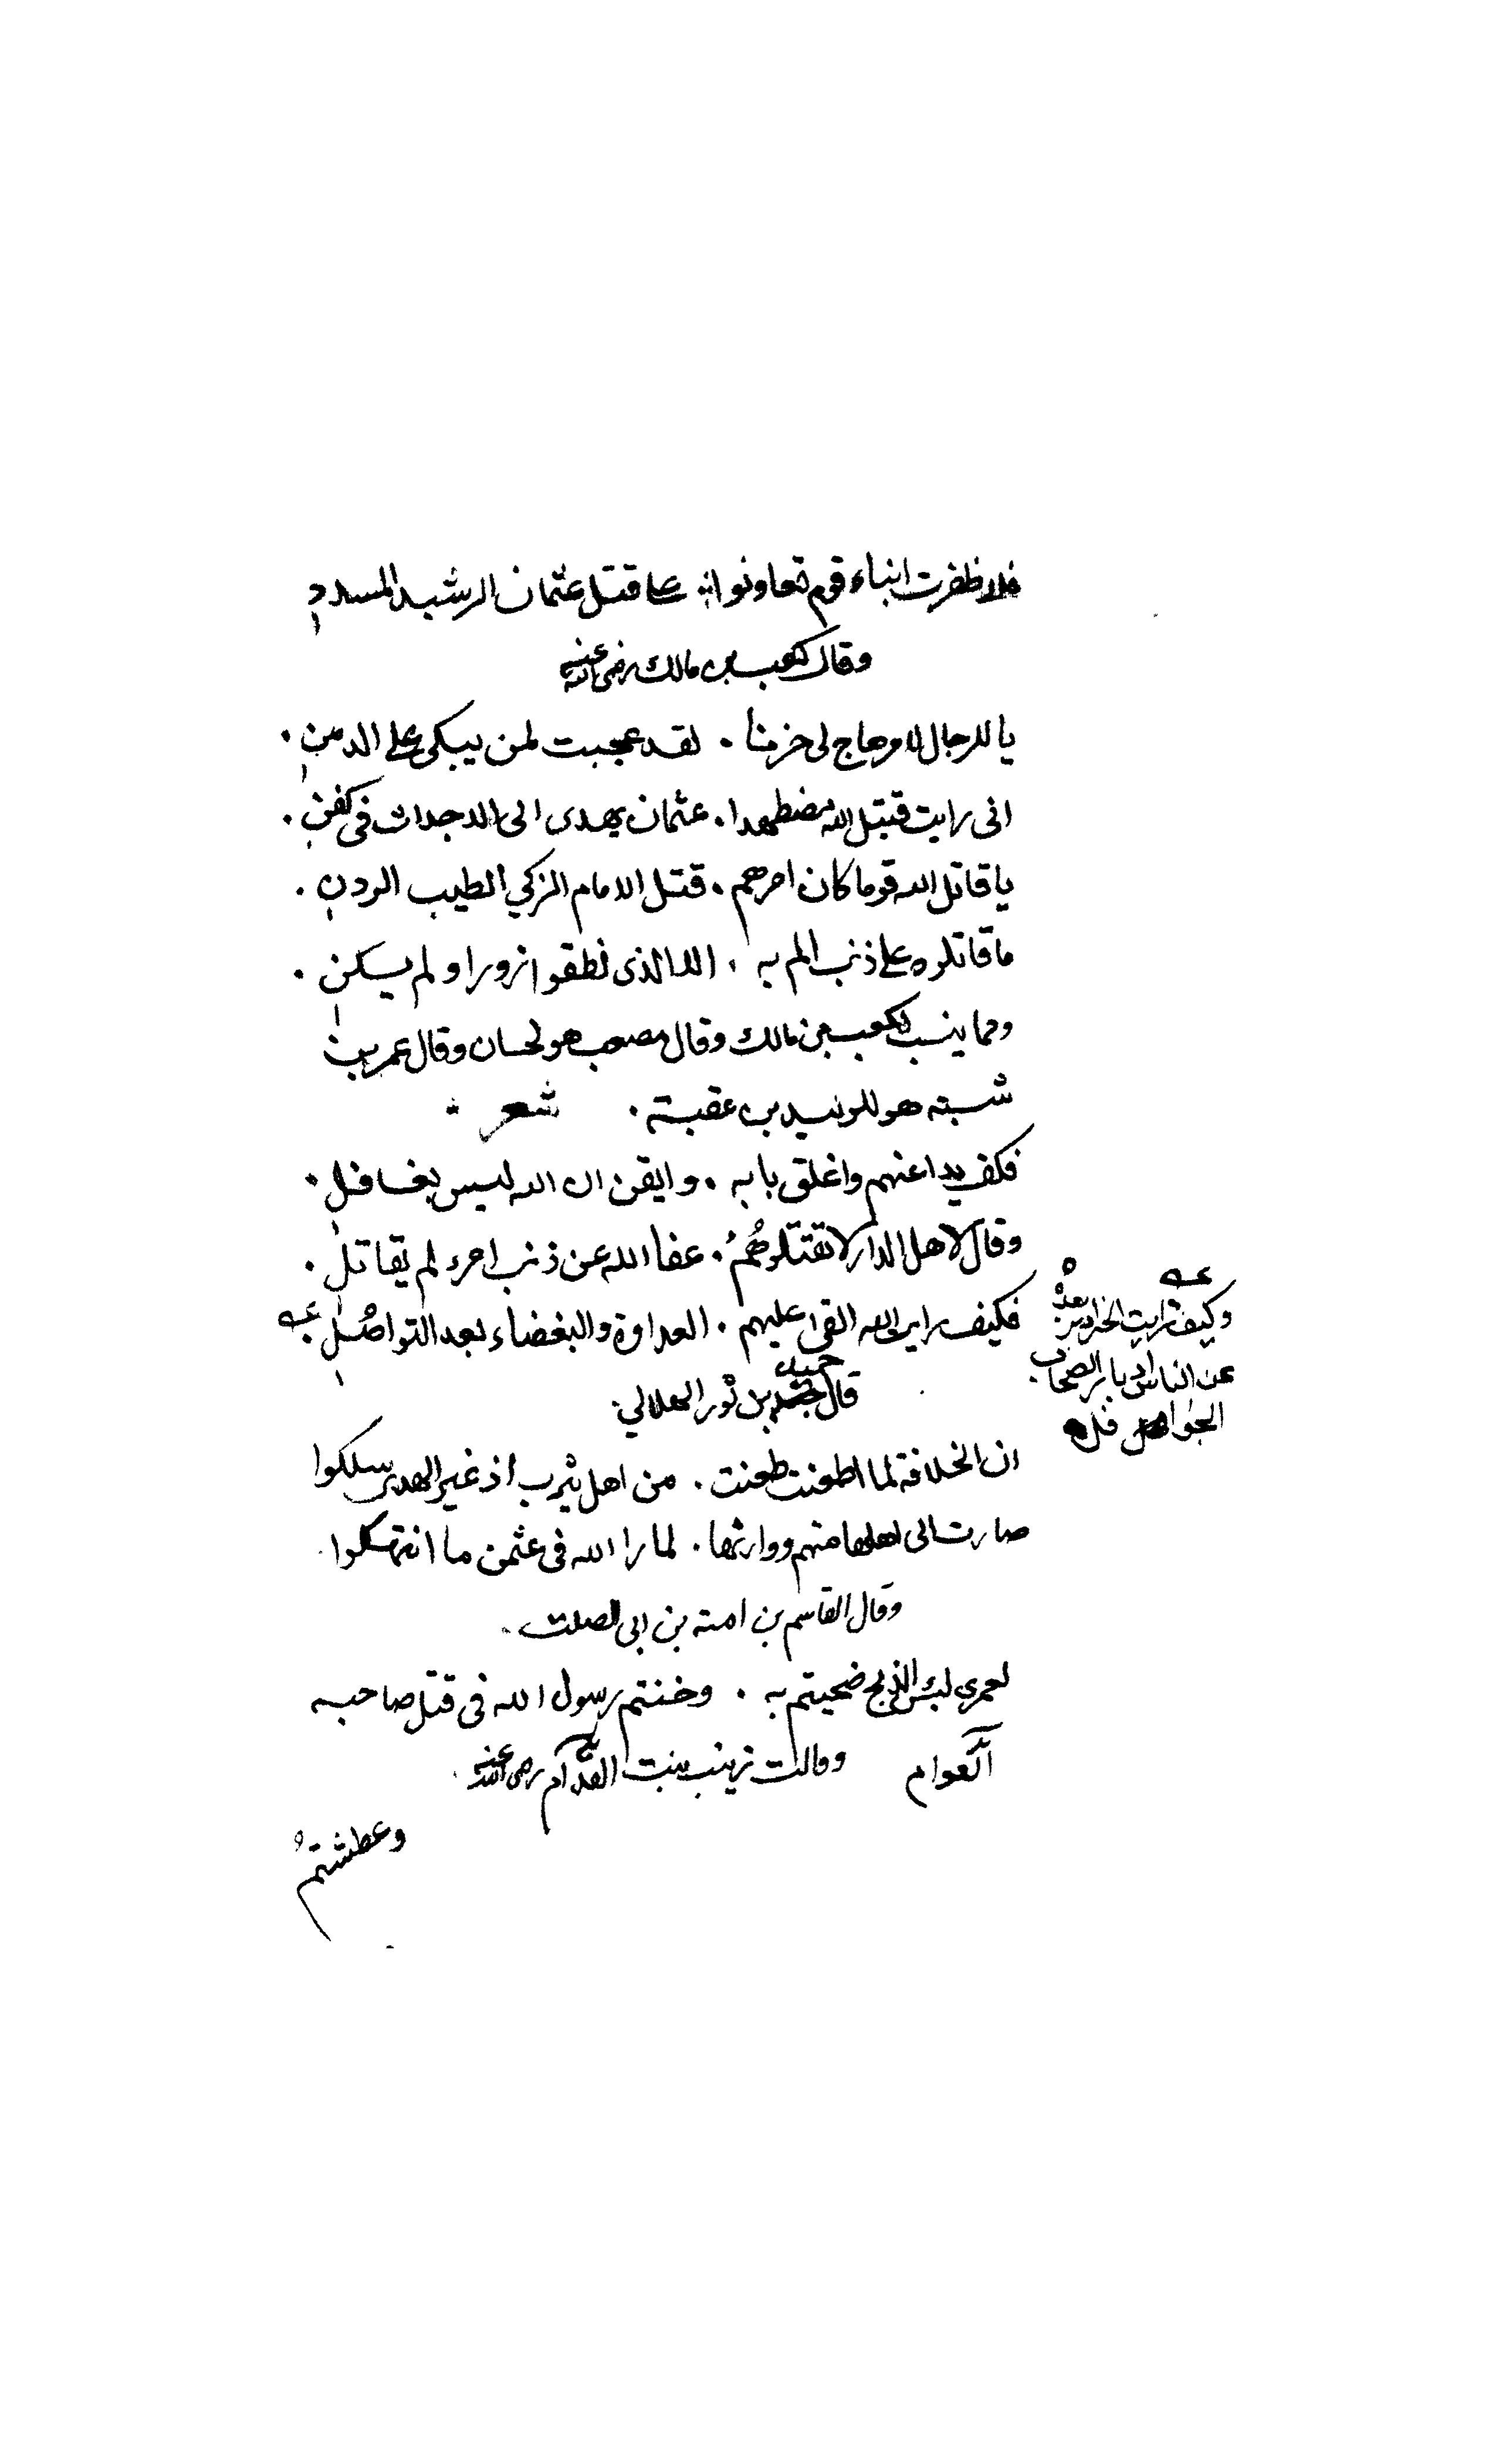 فلا ظفرت ابناء قوم تعاونوا على قتل عثمان الرشيد المسدد
وقال كعب بن مالك رضي الله عنه
يا للرجال لامر هاج لي حزنا . لقد عجبت لمن يبكى على الدمن .
انى رايت قتيل الله مضطهدا . عثمان يهدى الى الاجداث فى كفن .
يا قاتل الله قوما كان امرهم . قتل الامام الزكي الطيب الردن .
ما قاتلوه على ذنب الم به . الا الذى نطقوا زورا ولم يكن .
ومما ينسب لكعب بن مالك وقال مصعب هو لحسان وقال عمر بن
شبته هو للوليد بن عقبة . شعر
فكف يدا عنهم واغلق بابه . وايقن ان الله ليس بغافل .
وقال لاهل الدار لا تقتلوهم . عفا الله عن ذنب امرء لم يقاتل .
فكيف رايت الله القى عليهم . العداوة والبغضاء بعد التواصل
وكيف رايت الخير ادبر بعده
عن الناس ادبار السحاب
الجوافل
قال حميد بن ثور الهلالي .
ان الخلافة لما اظعنت ظعنت . من اهل يثرب اذ غير الهدى سلكوا
صارت الى اهلها منهم ووارثها . لما را الله فى عثمن ما انتهكوا .
وقال القاسم بن امية بن ابى الصلت .
لعمرى لبئس الذبح ضحيتم به . وخنتم رسول الله فى قتل صاحبه
وقالت زينب بنت العوام رضى الله عنها
العوام
وعطشتم